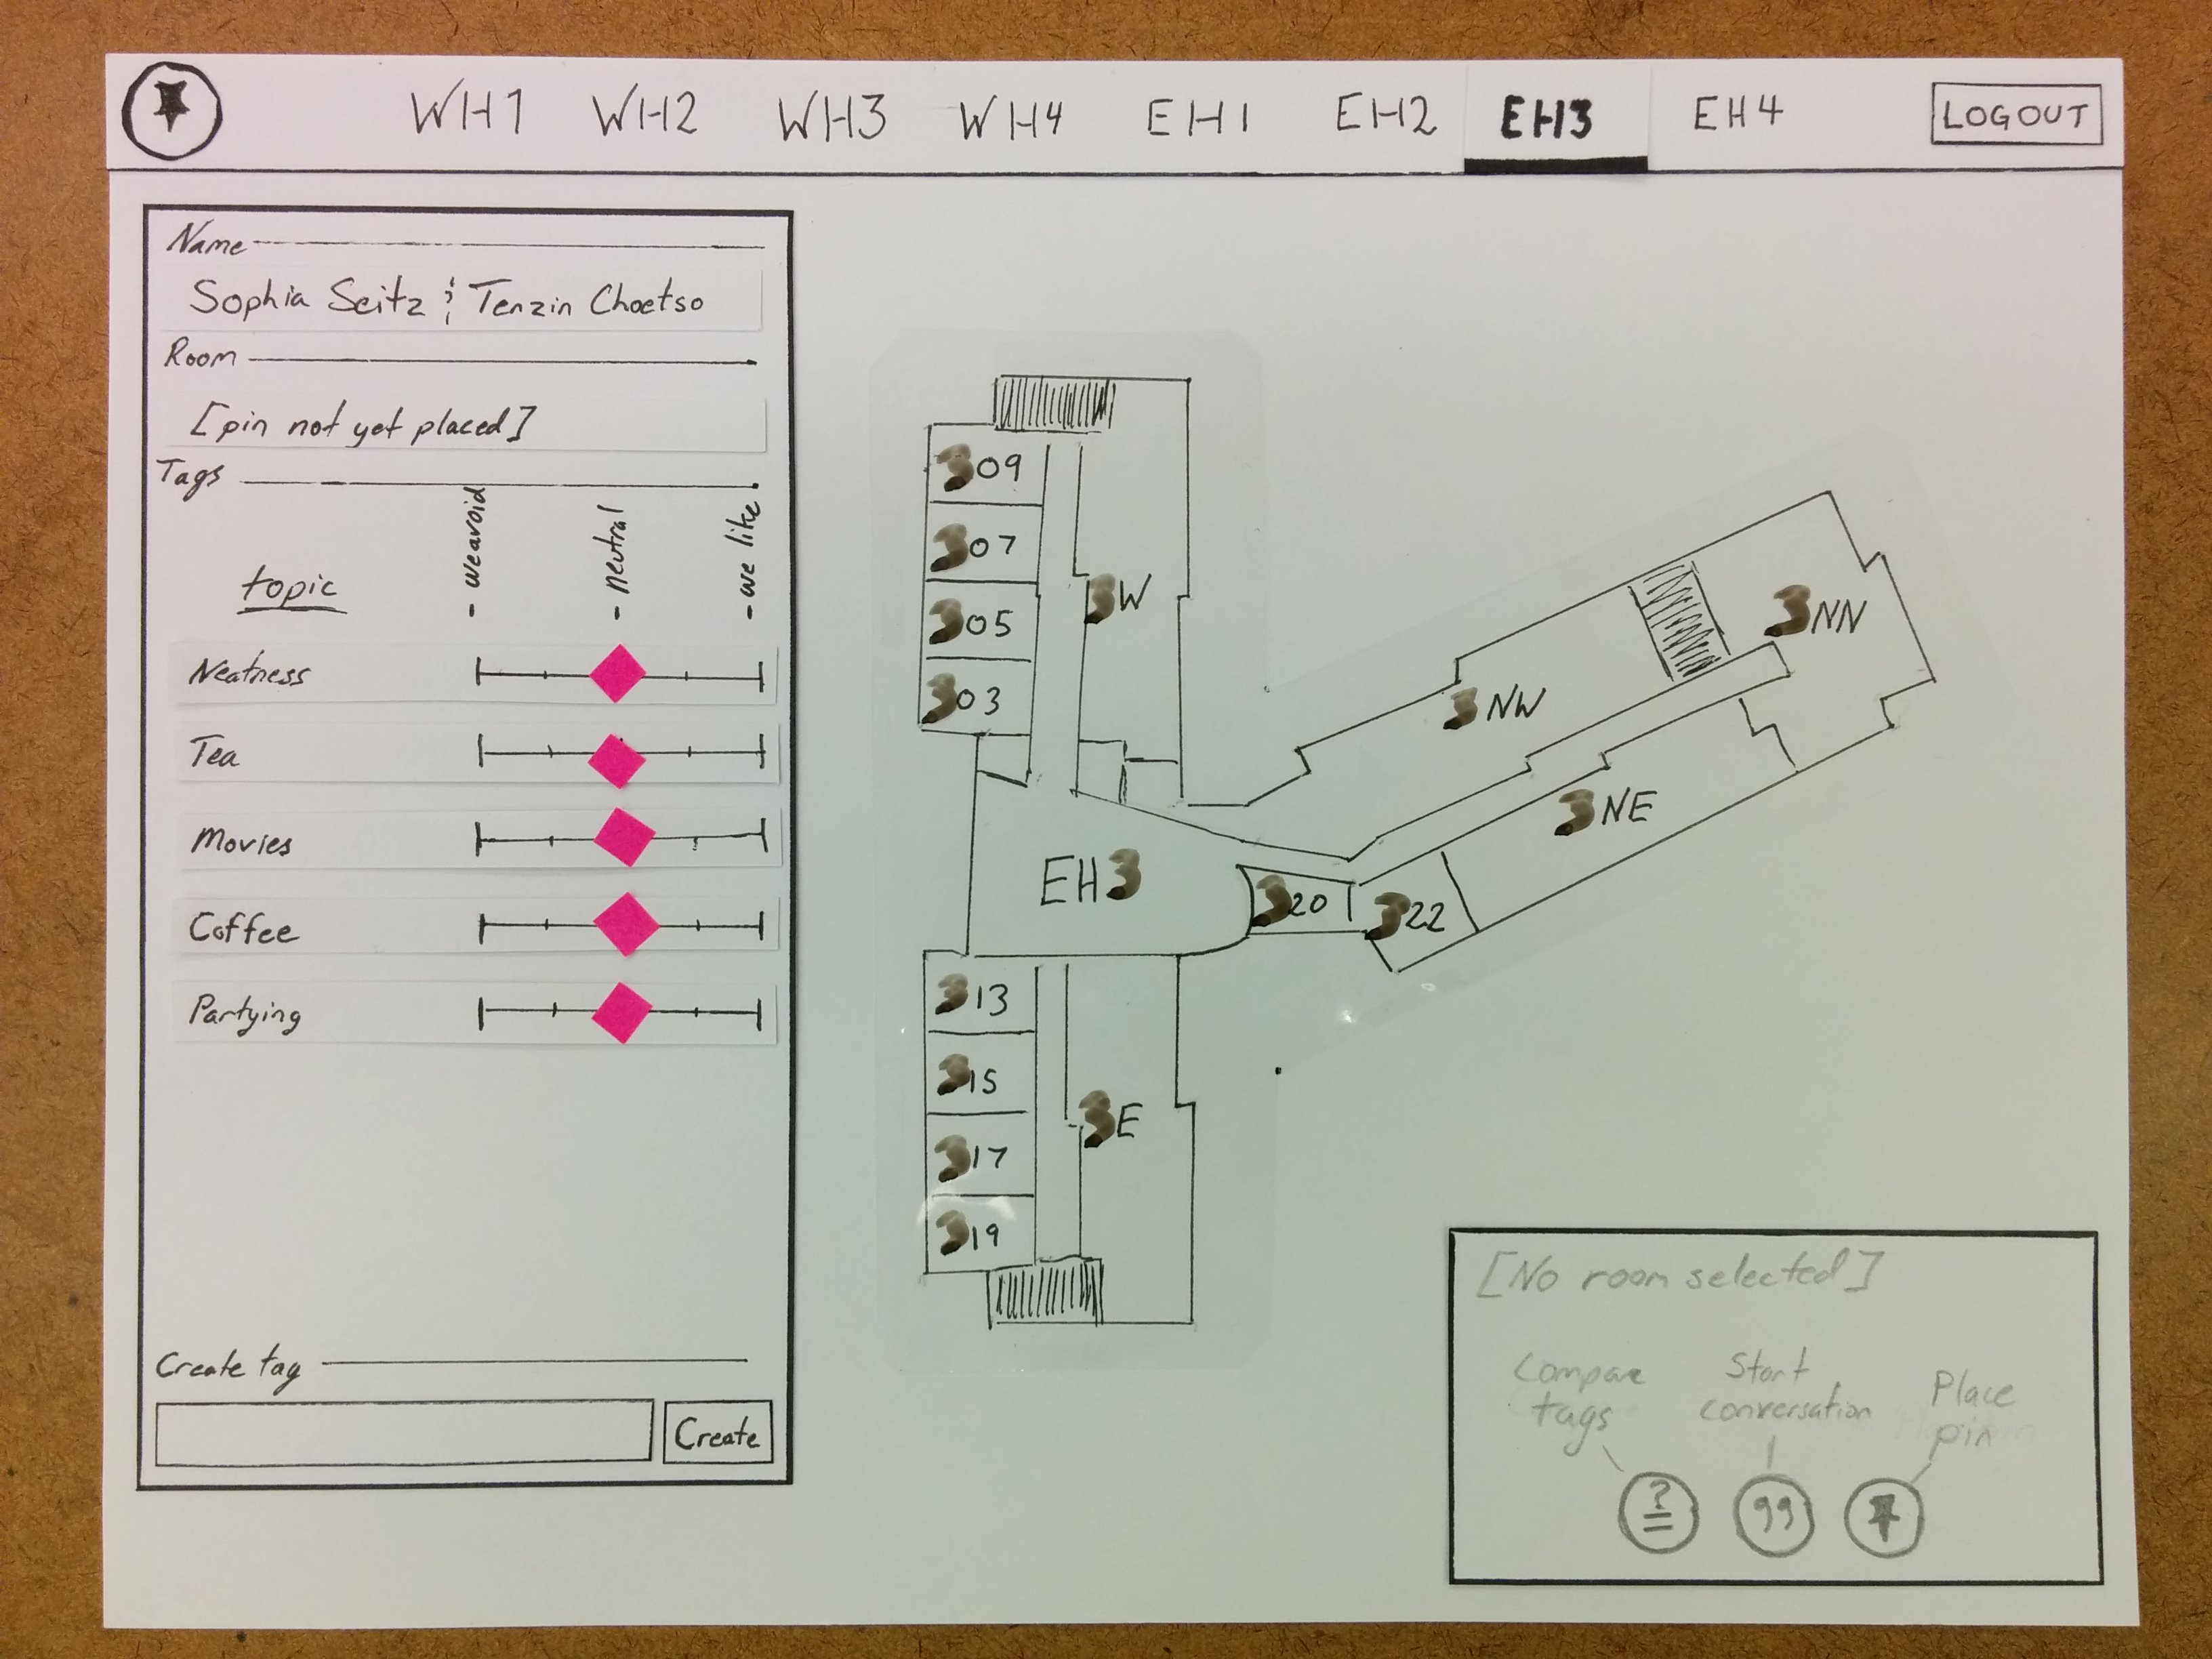 WH1 WH2 WH3 WH4 EH1 EH2 EH3 EH4 LOGOUT
Name
Sophia Seitz & Tenzin Choetso
Room
[pin not yet placed]
Tags
topic - we avoid - neutral - we like
Neatness
Tea
Movies
Coffee
Partying
Create tag
Create
309
307
305
303
3W
3NN
3NW
3NE
EH3
320
322
313
315
317
319
3E
[No room selected]
Compare tags
Start conversation
Place pin
?
=
99